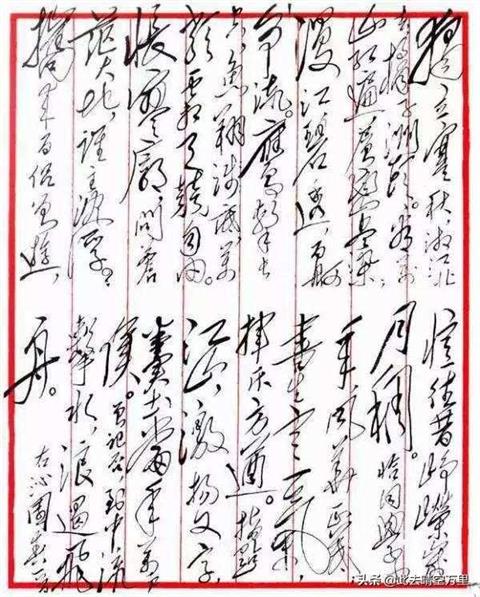 独立寒秋，湘江北
去，橘子洲头。看万
山红遍，层林尽染，
漫江碧透，百舸
争流。鹰击长
空，鱼翔浅底，万
类霜天竞自由。
怅寥廓，问苍
茫大地，谁主沉浮？
携来百侣曾游，
忆往昔峥嵘岁
月稠。恰同学少
年，风华正茂，
书生意气，
挥斥方遒。指点
江山，激扬文字，
粪土当年万户
侯。曾记否，到中流
击水，浪遏飞
舟。
右沁园春一首
头条 @此去晴空万里